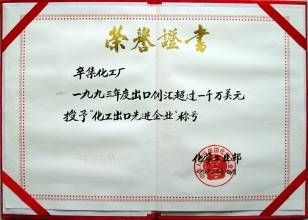 荣誉證書
辛集化工厂
一九九三年度出口创汇超过一千万美元
授予“化工出口先进企业”称号
化学工业部